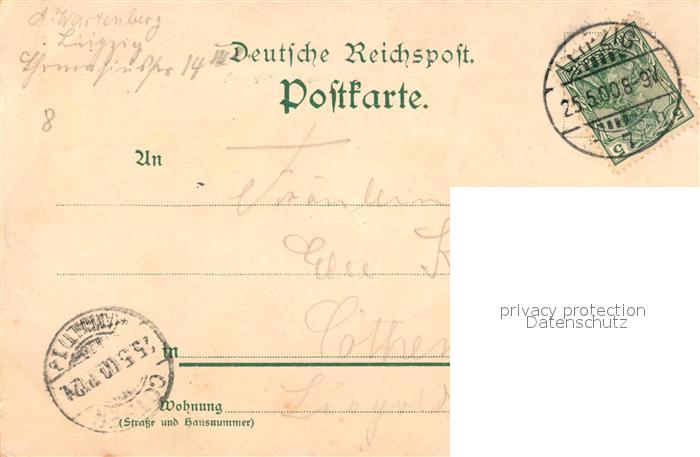 A. Wartenberg
Leipzig
Thomasiusstr 14 III
8
Deutsche Reichspost.
Postkarte.
LEIPZIG
25.5.00.8-9V.
5 5
An
Fräulein
Else K
25.5.00
in Cöthen
Wohnung
(Straße und Hausnummer)
privacy protection
Datenschutz